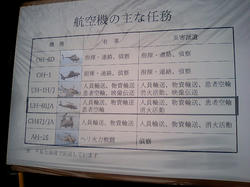 航空機の主な任務
機種 有事 災害派遣
OH-6D 指揮・連絡、偵察 指揮・連絡、偵察
OH-1 指揮・連絡、偵察 指揮・連絡、偵察
UH-1H/J 人員輸送、物資輸送 人員輸送、物資輸送、患者空輸
患者空輸、映像伝送 消火活動、映像伝送
UH-60JA 人員輸送、物資輸送 人員輸送、物資輸送、患者空輸
CH47J/JA 人員輸送、物資輸送 人員輸送、物資輸送、消火活動
AH-1S ヘリ火力戦闘 偵察
しています